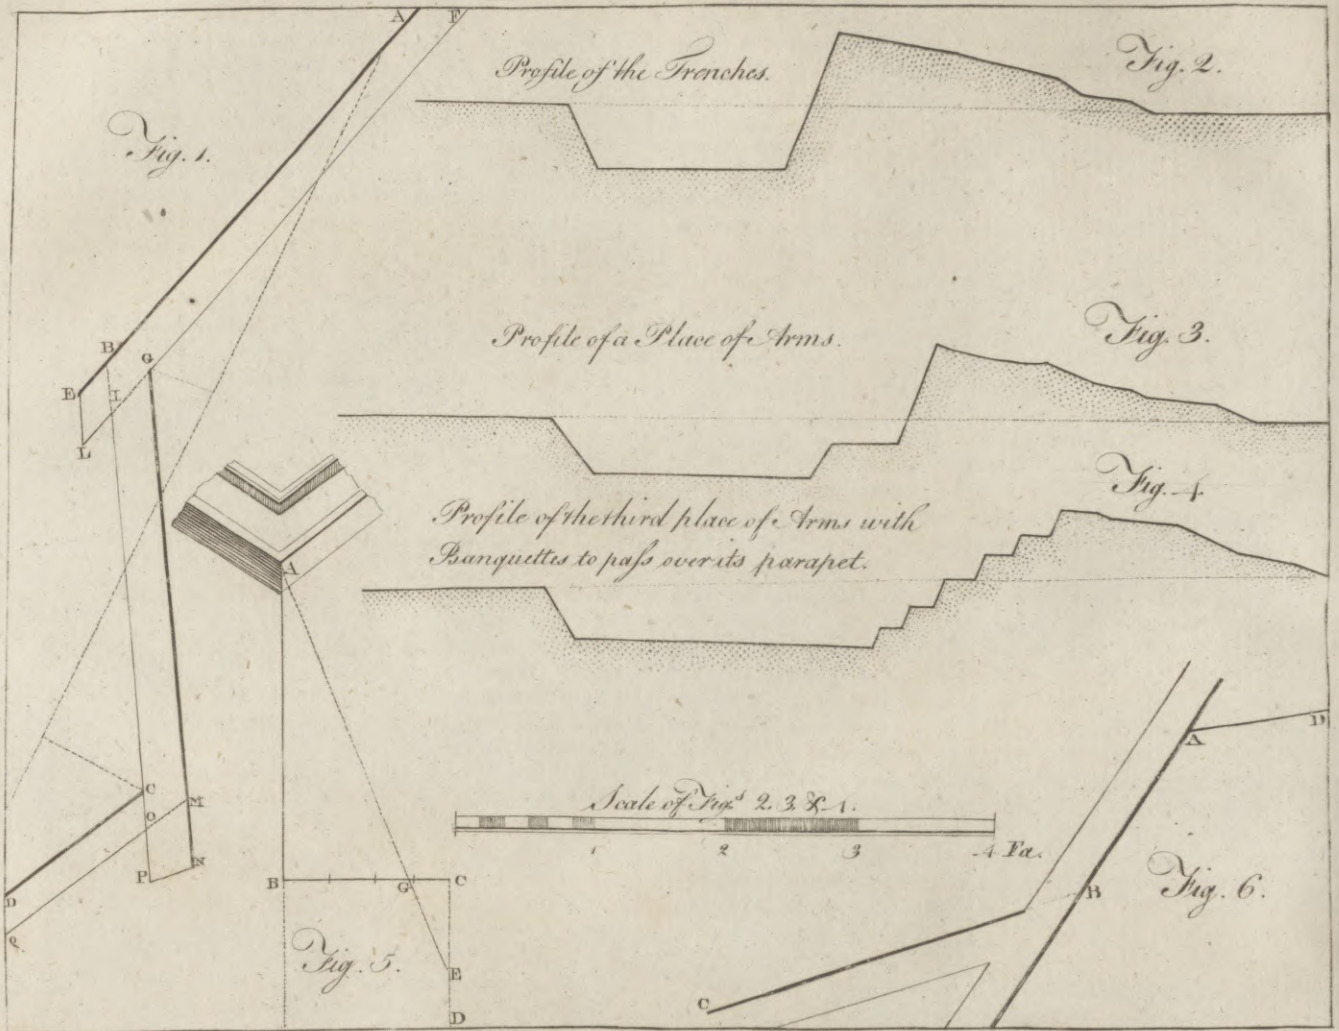 A F
Profile of the Trenches.
Fig. 2.
Fig. 1.
Profile of a Place of Arms.
Fig. 3.
B G
E I
L
Fig. 4
Profile of the third place of Arms with
Banquettes to paſs over its parapet.
A
A D
C M
O
Scale of Figs. 2. 3. & 4.
1 2 3 4 Fa.
P N
B G C
D
B
Fig. 6.
Q
Fig. 5.
E
C
D